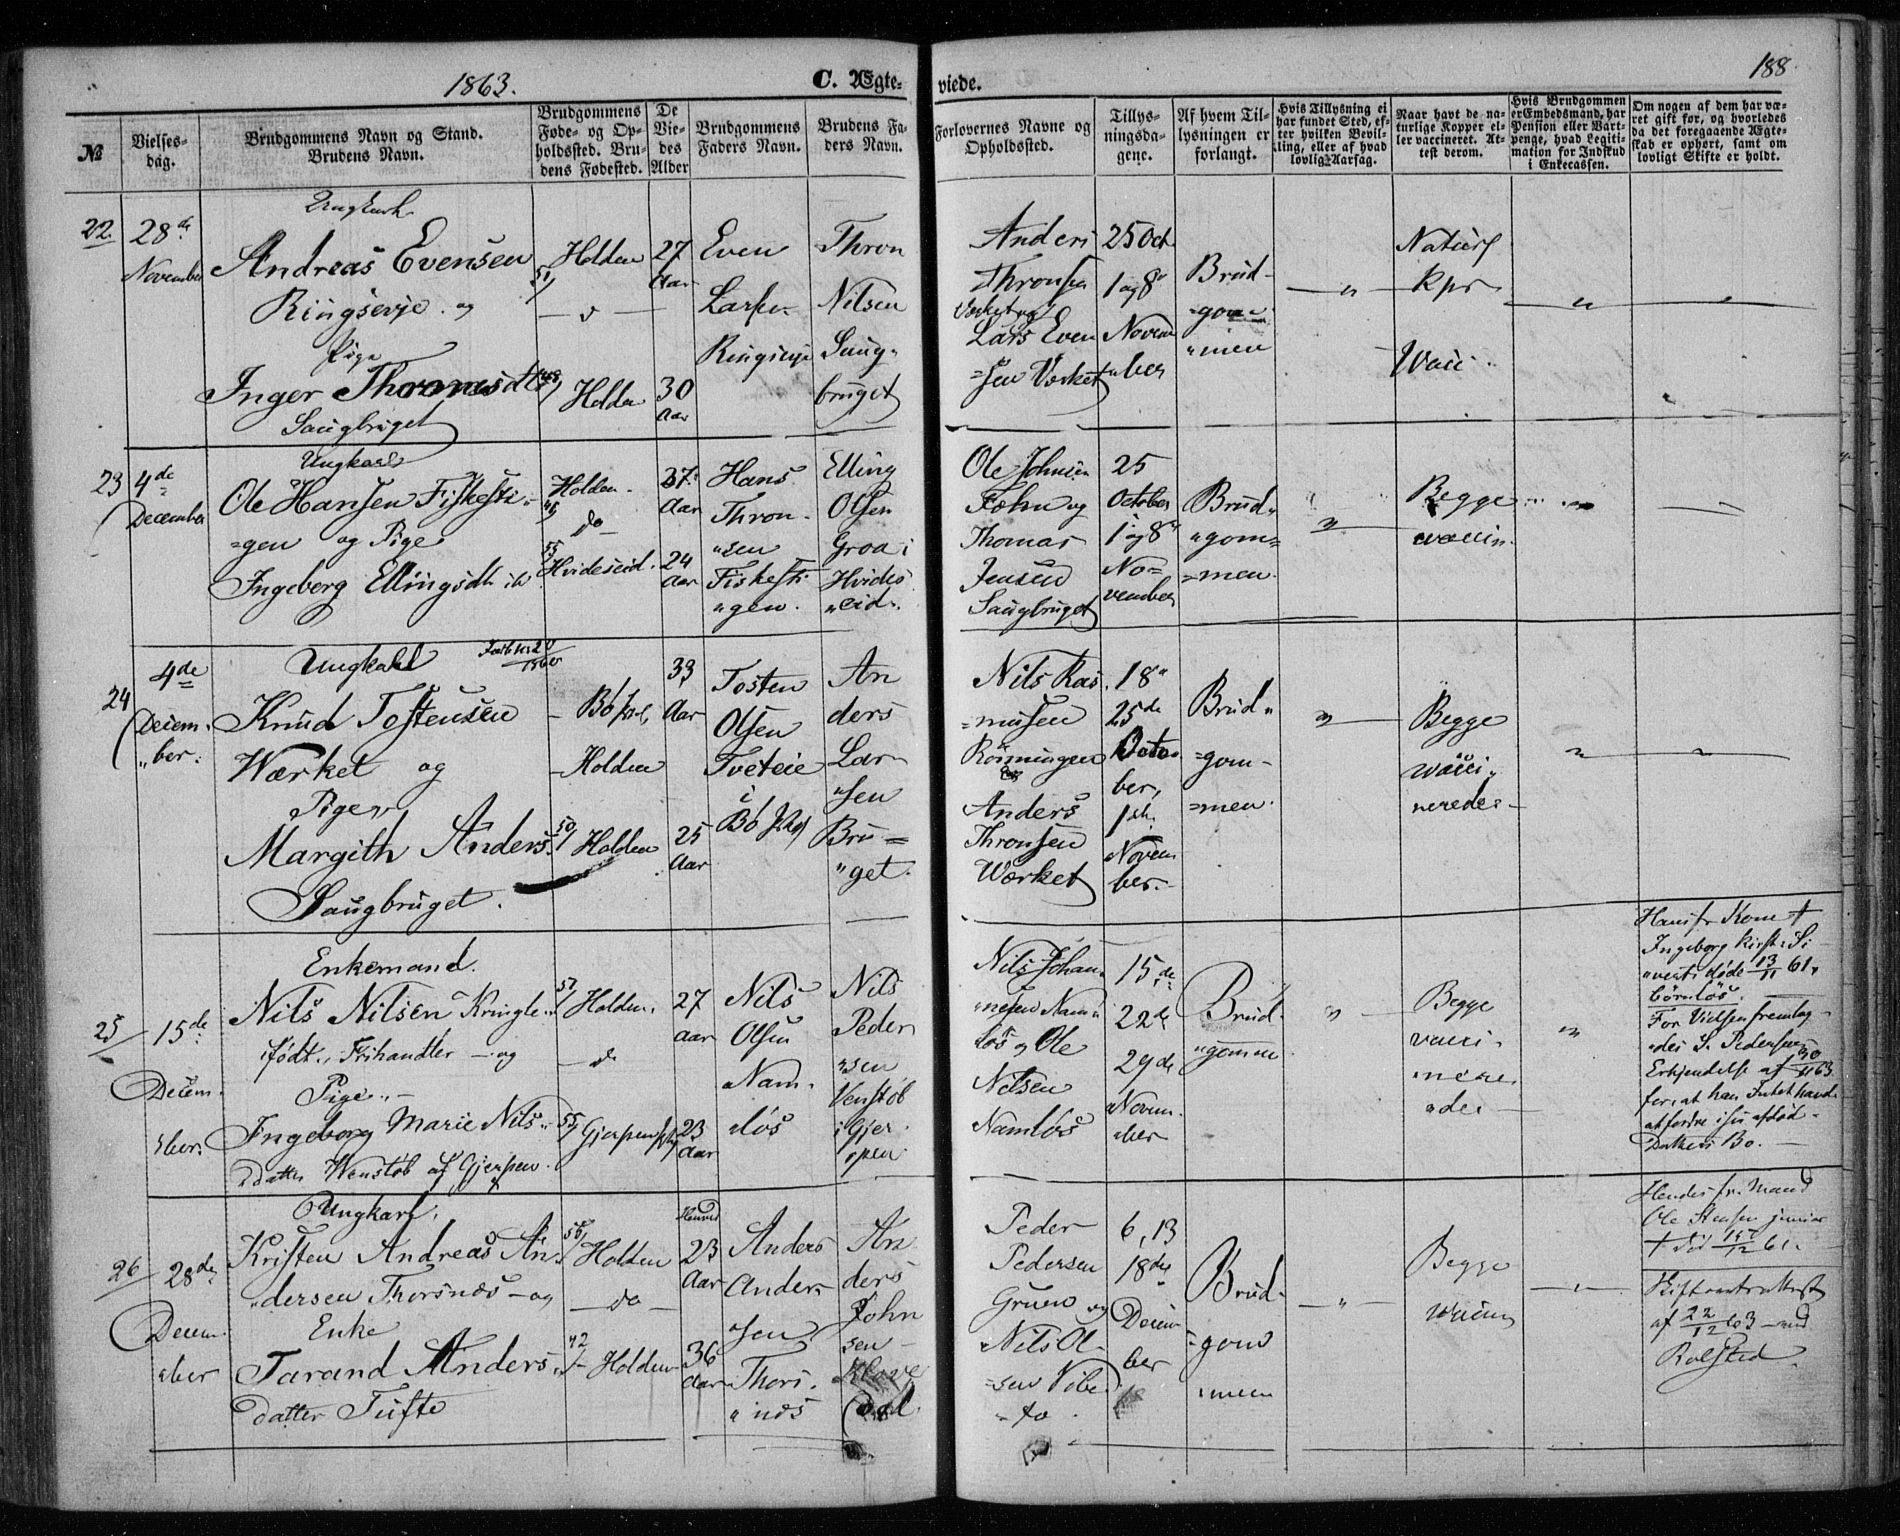 1863.
C. Ægte-
viede.
188.
№
Vielses-
dag.
Brudgommens Navn og Stand.
Brudens Navn.
Brudgommens
Føde- og Op-
holdssted. Bru-
dens Fødested.
De
Vie-
des
Alder
Brudgommens
Faders Navn.
Brudens Fa-
ders Navn.
Forlovernes Navne og
Opholdssted.
Tillys-
ningsda-
gene.
Af hvem Til-
lysningen er
forlangt.
Hvis Tillysning ei
har fundet Sted, ef-
ter hvilken Bevil-
ling, eller af hvad
lovlig Aarsag.
Naar havt de na-
turlige Kopper el-
ler vaccineret. At-
test derom.
Hvis Brudgommen
er Embedsmand, har
Pension eller Vart-
penge, hvad Legiti-
mation for Indskud
i Enkecassen.
Om nogen af dem har væ-
ret gift før, og hvorledes
da det foregaaende Ægte-
skab er ophørt, samt om
lovligt Skifte er holdt.
22.
28de
November
Ungkarl
Andreas Evensen
Ringsevje og
Pige
Inger Thronsdtr
Saugbruget
51/ Holden
48/ Holden
27
Aar
30
Aar
Even
Larsen
Ringsevje
Thron
Nilsen
Saug-
bruget
Anders
Thronsen
Værket og
Lars Even
=sen Værket
25 Oct.
1 og 8de
Novem
"ber
Brud-
=gom-
"men
Naturl
Kpr
Vacc.
23
4de
December
Ungkarl
Ole Hansen Fiskesti-
=gen og Pige
Ingeborg Ellingsdtr
Holden.
do
55/ Hvideseid.
37
Aar
24
Aar
Hans
Thron-
"sen
Fiskesti-
"gen.
Elling
Olsen
Groa i
Hvides
"eid.
Ole Johnsen
Fæhn og
Thomas
Jensen
Saugbruget
25
October
1 og 8de
No=
vember
Brud"
"gom=
=men.
Begge
vaccin.
24
4de
Decem-
"ber.
Ungkarl
Knud Tostensen
Værket og
Pige
Margith Anders
Saugbruget.
Bø
Holden
50/ Holden
33
Aar
25
Aar
Tosten
Olsen
Tveteie
i
Bø
An
ders
Lar-
"sen
Bru=
"get.
Nils Ras
=musen
Rönningen
og
Anders
Thronsen
Værket
18de
25de
Octo-
ber,
1ste
Novem
ber.
Brud"
=gom-
=men.
Begge
vacci-
nerede
25
15de
Decem-
"ber.
Enkemand.
Nils Nilsen Kringle-
født, Frihandler og
Pige
Ingeborg Marie Nils-
datter Wenstøb af Gjerpen
57/ Holden.
do
55/ Gjerpen
27
Aar
23
Aar
Nils
Olsen
Nam-
"løs
Nils
Peder
"sen
Venstøb
i Gjer-
"pen
Nils Johan-
"nesen Nam"
løs og Ole
Nilsen
Namløs
15de
22de
29de
Novem-
"ber
Brud-
"gommen
Begge
vacci-
"nere
"de
Hans fr. Kone †
Ingeborg Kirst: Si-
"verts døde 13/11 61.
börnløs.
For Vielsen fremlag-
"des S. Pedersens
Erkjendelse af 30/11 63
for, at han Intet havde
at fordre i sin afdöd
Datters Bo.
26
28de
Decem-
"ber
Ungkarl,
Kristen Andreas An-
"dersen Thorsnæs og
Enke
Tarand Anders-
datter Tufte
56/ Holden
do
42/ Holden
23
Aar
36
Aar
Anders
Ander-
"sen
Thors-
"næs
An
ders
John
sen
dal
Peder
Pedersen
Gruen og
Nils Ol-
"sen Vibe-
"to.
6, 13
18de
Decem-
ber
Brud-
=gom
"men
Begge
vaccin
Hendes fr. Mand
Ole Stensen junior
† död 15/12 61.
Skiftextrakt
af 22/12 63
Rolsted